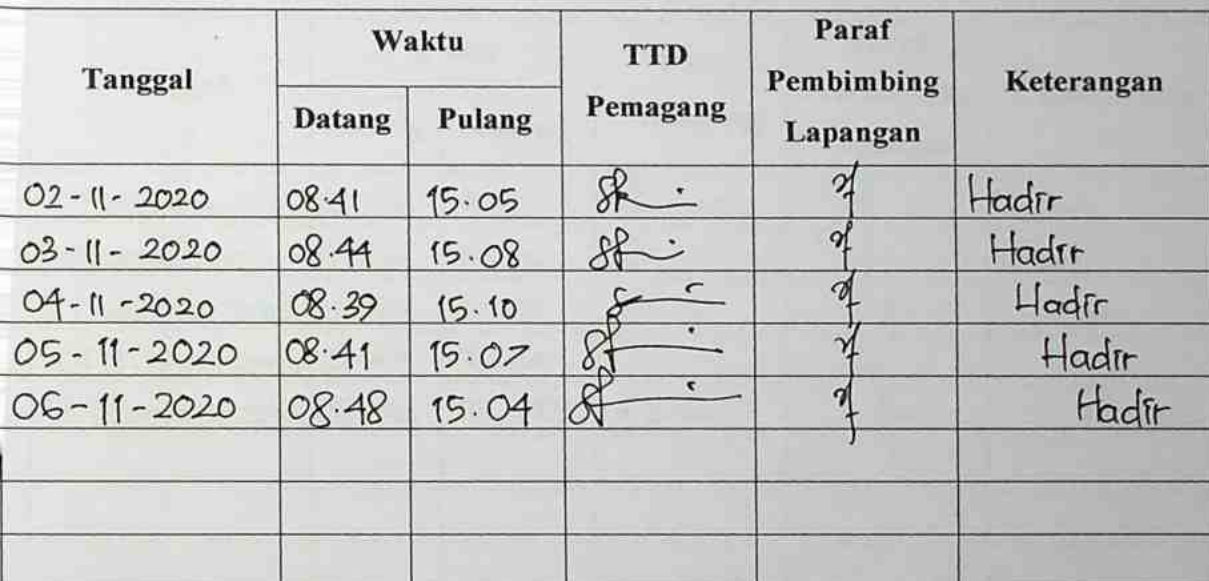 Tanggal Waktu TTD Pemagang Paraf Pembimbing Lapangan Keterangan
Datang Pulang
02-11-2020 08.41 15.05 Hadir
03-11-2020 08.44 15.08 Hadir
04-11-2020 08.39 15.10 Hadir
05-11-2020 08.41 15.07 Hadir
06-11-2020 08.48 15.04 Hadir